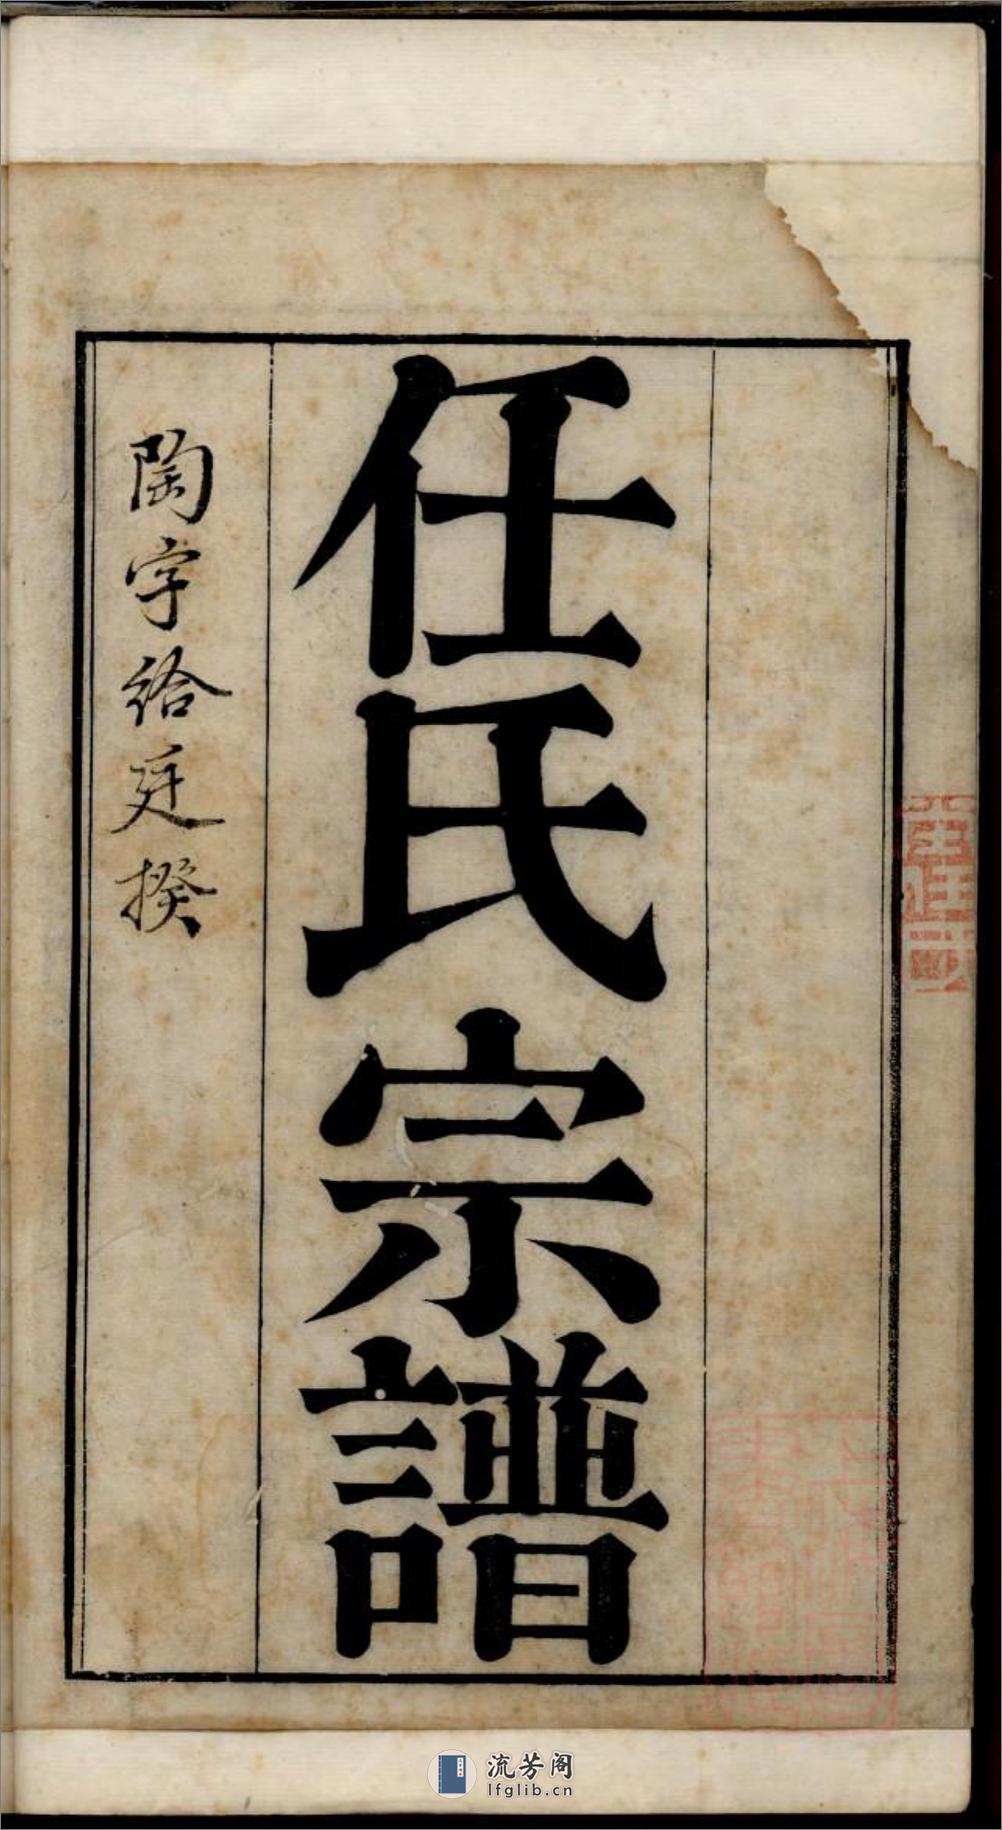 任氏宗譜
陶字給廷揆
流芳阁
lfglib.cn